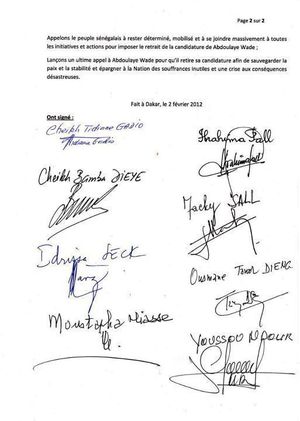 Page 2 sur 2
Appelons le peuple sénégalais à rester déterminé, mobilisé et à se joindre massivement à toutes
les initiatives et actions pour imposer le retrait de la candidature de Abdoulaye Wade ;
Lançons un ultime appel à Abdoulaye Wade pour qu'il retire sa candidature afin de sauvegarder la
paix et la stabilité et épargner à la Nation des souffrances inutiles et une crise aux conséquences
désastreuses.
Fait à Dakar, le 2 février 2012
Ont signé :
Cheikh Tidiane GADIO
Ibrahima Fall
Cheikh Bamba DIEYE
Macky SALL
Idrissa SECK
Ousmane Tanor DIENG
Moustapha Niasse
YOUSSOU NDOUR